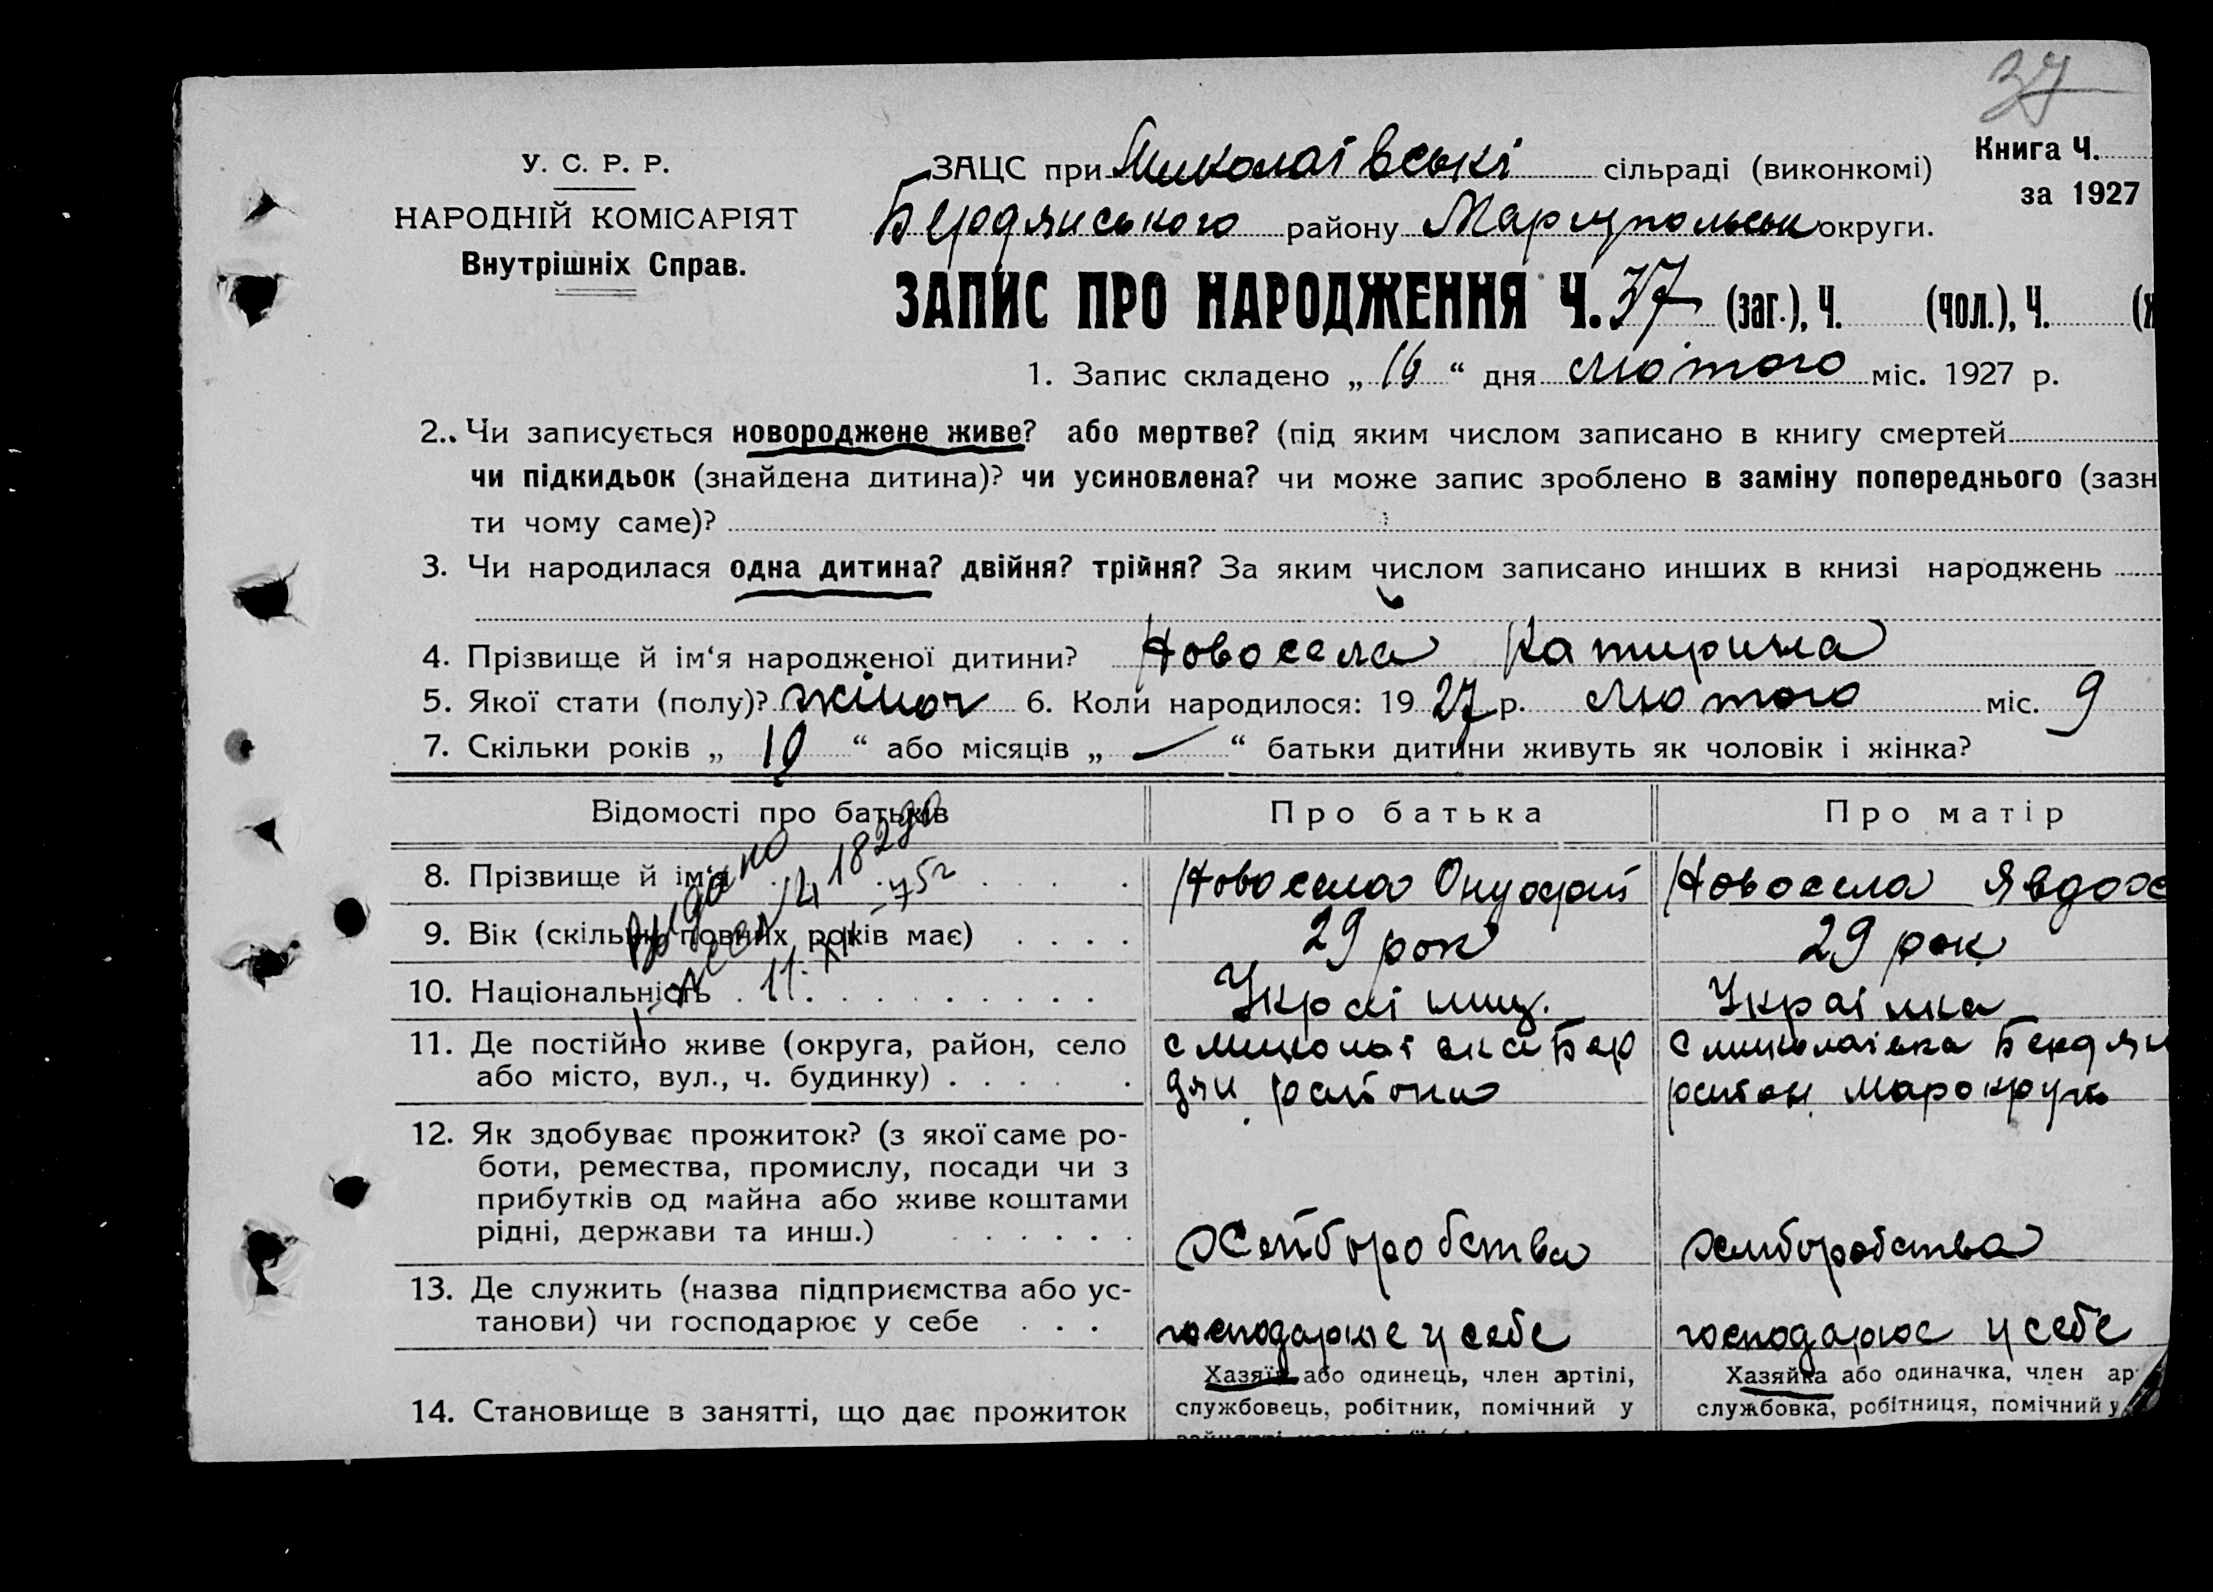 37
У. С. Р. Р.
НАРОДНІЙ КОМІСАРІЯТ
Внутрішніх Справ.
ЗАЦС при Миколаївські сільраді (виконкомі)
Бердянського району Маріупольськ округи.
Книга Ч.
за 1927
ЗАПИС ПРО НАРОДЖЕННЯ Ч. 37 (заг.), Ч. (чол.), Ч. (ж
1. Запис складено „ 16 “ дня лютого міс. 1927 р.
2. Чи записується новороджене живе? або мертве? (під яким числом записано в книгу смертей
чи підкидьок (знайдена дитина)? чи усиновлена? чи може запис зроблено в заміну попереднього (зазн
ти чому саме)?
3. Чи народилася одна дитина? двійня? трійня? За яким числом записано инших в книзі народжень
4. Прізвище й ім‘я народженої дитини? Новосела Катирина
5. Якої стати (полу)? жіноч 6. Коли народилося: 19 27 р. лютого міс. 9
7. Скільки років „ 10 “ або місяців „ — “ батьки дитини живуть як чоловік і жінка?
Відомості про батьків Про батька Про матір
8. Прізвище й ім‘я Новосела Онуфрій Новосела Явдос
9. Вік (скільки повних років має) 29 рок 29 рок
10. Національність Україниц. Українка
11. Де постійно живе (округа, район, село
або місто, вул., ч. будинку)
с Миколаівка Бер
дян району
с Миколаівка Бердян
район Марокруги
12. Як здобуває прожиток? (з якої саме ро-
боти, ремества, промислу, посади чи з
прибутків од майна або живе коштами
рідні, держави та инш.)
Хлиборобства хлиборобства
13. Де служить (назва підприємства або ус-
танови) чи господарює у себе
господарює у себе господарює у себе
14. Становище в занятті, що дає прожиток
Хазяїн або одинець, член артілі,
службовець, робітник, помічний у
Хазяйка або одиначка, член ар
службовка, робітниця, помічний у